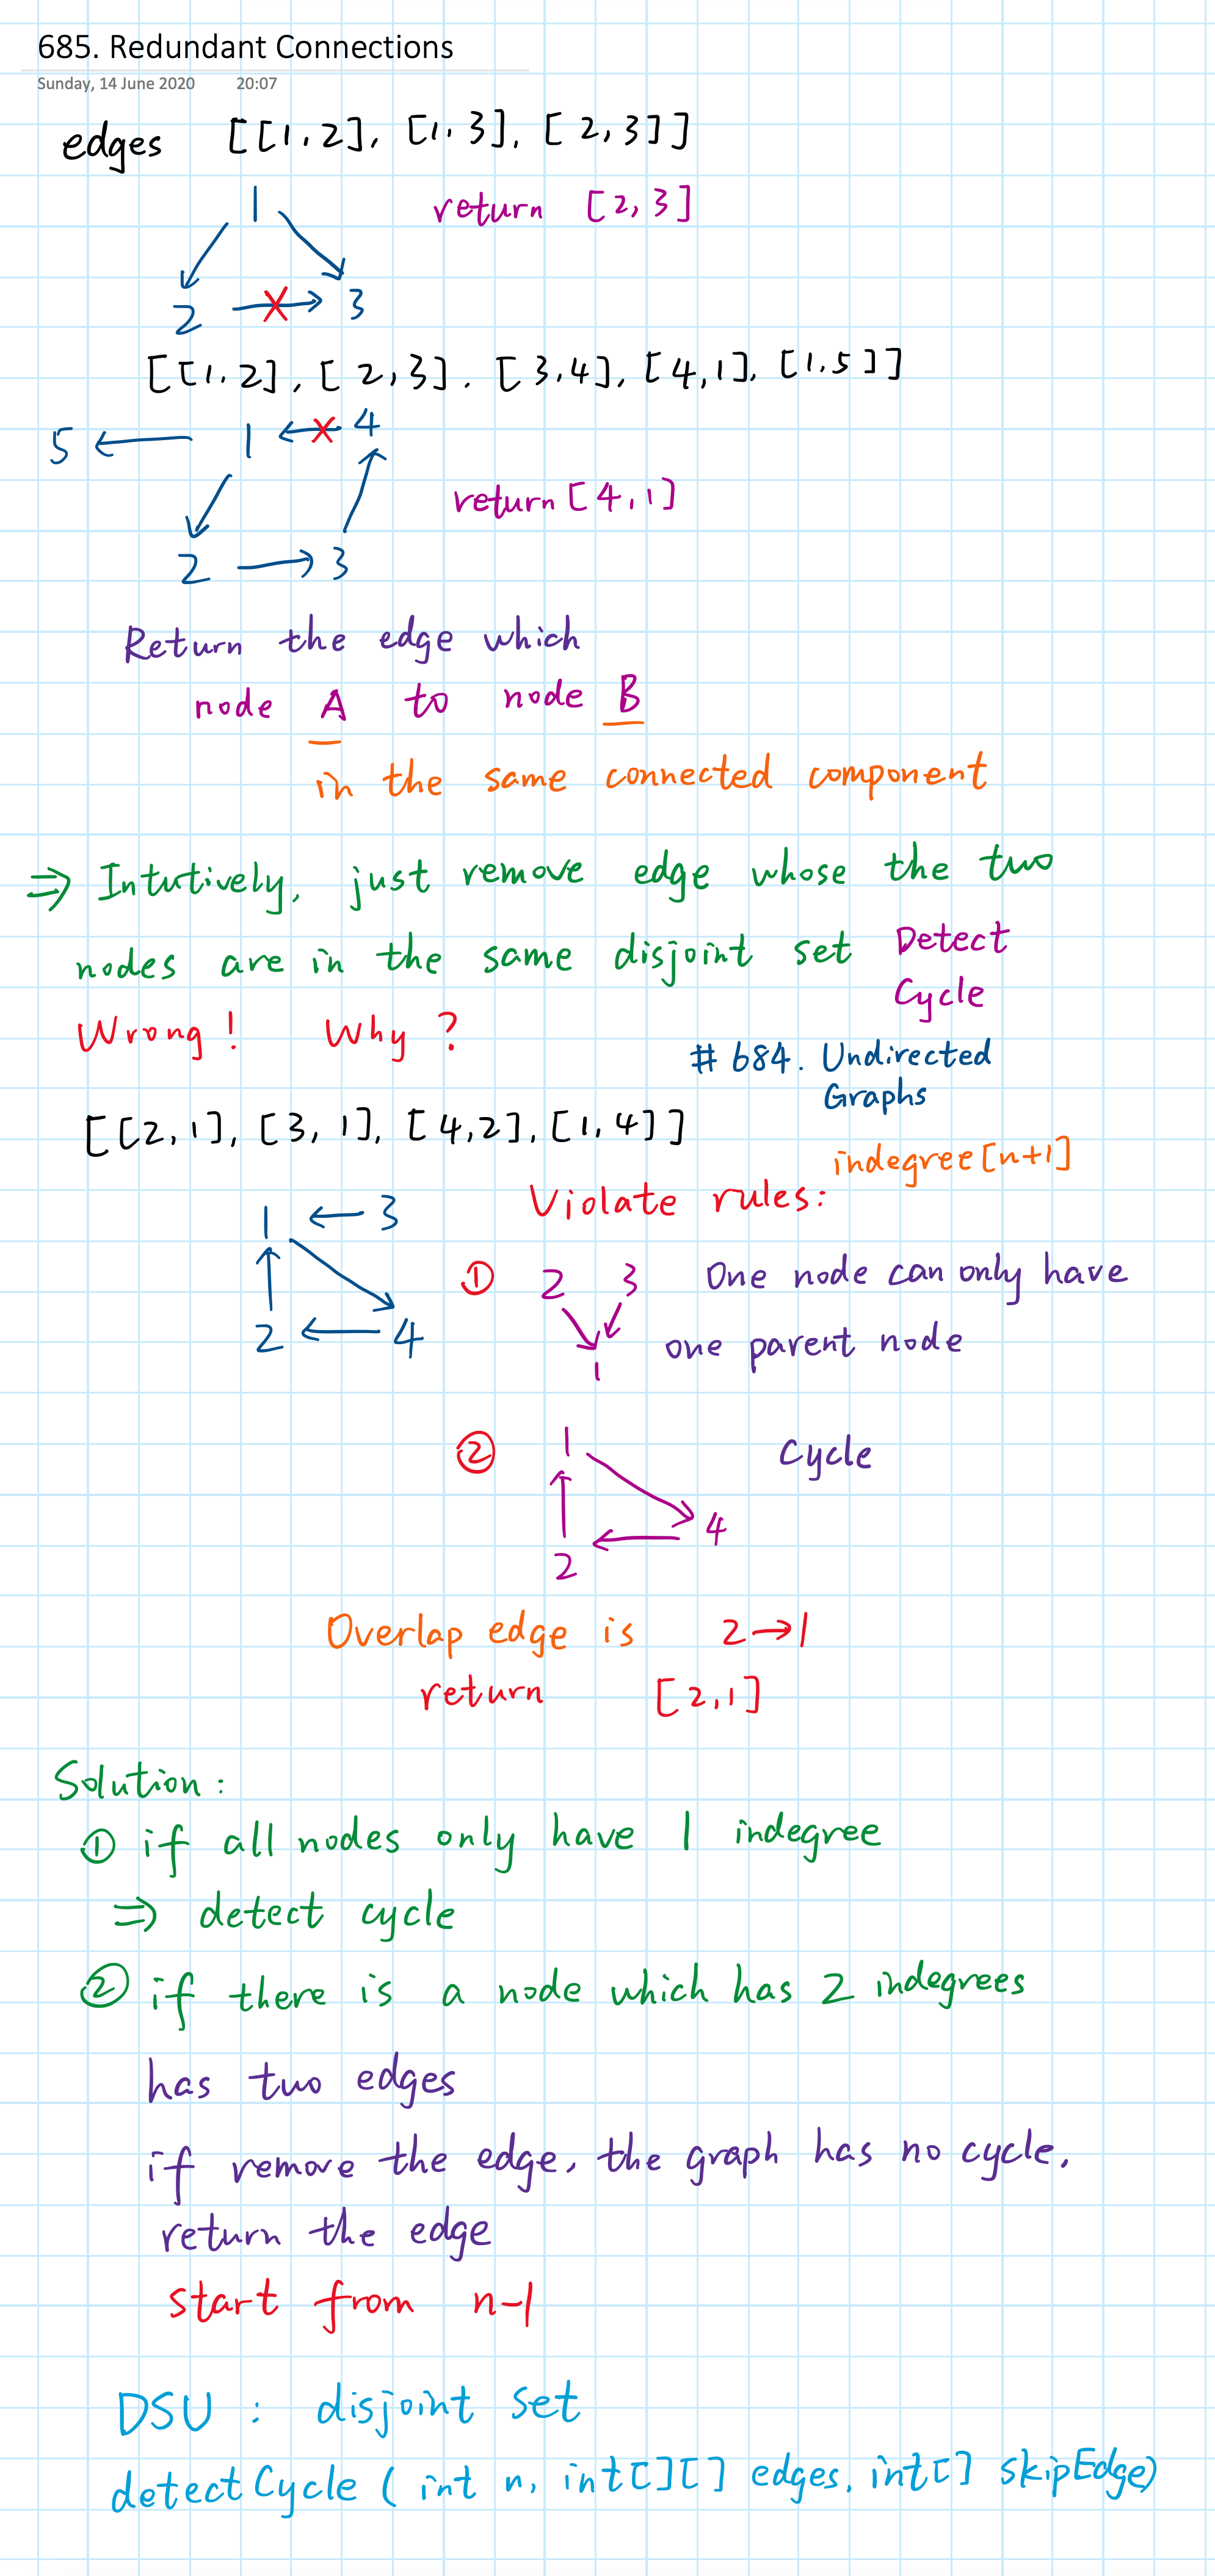 685. Redundant Connections
Sunday, 14 June 2020 20:07
edges [[1,2], [1,3], [2,3]]
1
return [2,3]
2 3
[[1,2], [2,3], [3,4], [4,1], [1,5]]
5 1 4
return [4,1]
2 3
Return the edge which
node A to node B
in the same connected component
⇒ Intutively, just remove edge whose the two
nodes are in the same disjoint set
Detect
Cycle
Wrong! Why?
# 684. Undirected
Graphs
[[2,1], [3,1], [4,2], [1,4]]
indegree[n+1]
Violate rules:
1 ← 3
2 ← 4
① 2 3 One node can only have
1 one parent node
② 1 Cycle
4
2
Overlap edge is 2→1
return [2,1]
Solution:
① if all nodes only have 1 indegree
⇒ detect cycle
② if there is a node which has 2 indegrees
has two edges
if remove the edge, the graph has no cycle,
return the edge
start from n-1
DSU : disjoint set
detectCycle (int n, int[][] edges, int[] skipEdge)